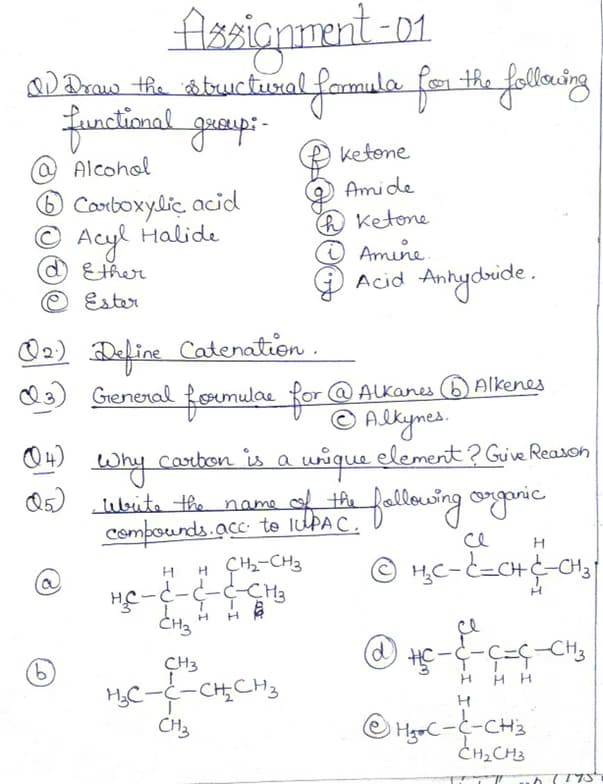 Assignment-01
Q1) Draw the structural formula for the following
functional group:-
(a) Alcohol
(b) Carboxylic acid
(c) Acyl Halide
(d) Ether
(e) Ester
(f) Ketone
(g) Amide
(h) Ketone
(i) Amine.
(j) Acid Anhydride.
Q2.) Define Catenation.
Q3) General formulae for (a) Alkanes (b) Alkenes
(c) Alkynes.
Q4) Why carbon is a unique element? Give Reason
Q5) Write the name of the following organic
compounds. acc. to IUPAC.
(a)
H H CH2-CH3
H3C-C-C-C-CH3
CH3 H H
(b)
CH3
H3C-C-CH2CH3
CH3
(c)
Cl H
H3C-C=CH C-CH3
H
(d)
Cl
H3C-C-C=C-CH3
H H H
(e)
H
H3C-C-CH3
CH2CH3